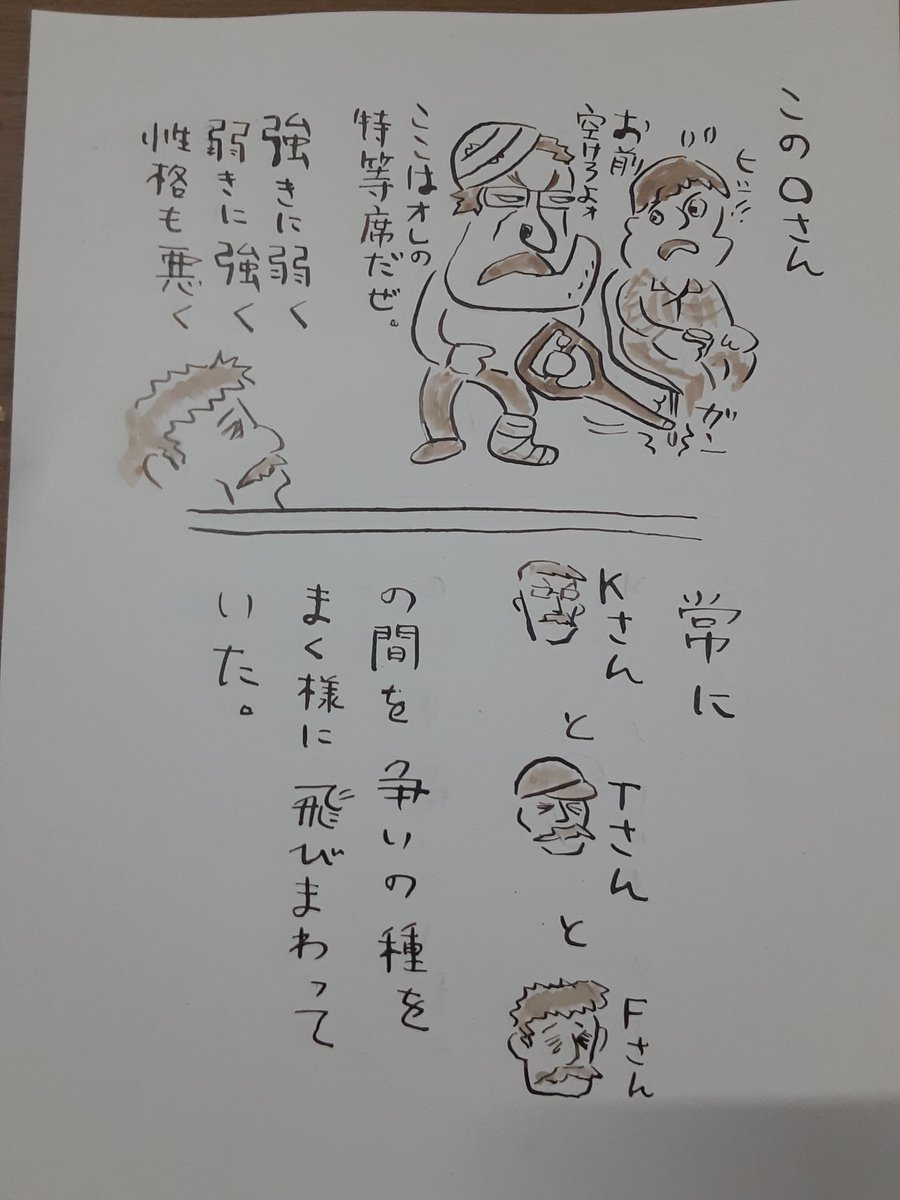 このOさん
ヒ〜〜
お前
空けろよォ
ガン
ここはオレの
特等席だぜ。
強きに弱く
弱きに強く
性格も悪く
常に
Kさんと
Tさんと
Fさん
の間を争いの種を
まく様に飛びまわって
いた。